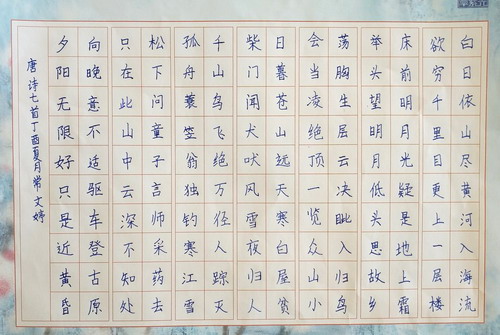 白日依山尽黄河入海流
欲穷千里目更上一层楼
床前明月光疑是地上霜
举头望明月低头思故乡
荡胸生层云决眦入归鸟
会当凌绝顶一览众山小
日暮苍山远天寒白屋贫
柴门闻犬吠风雪夜归人
千山鸟飞绝万径人踪灭
孤舟蓑笠翁独钓寒江雪
松下问童子言师采药去
只在此山中云深不知处
向晚意不适驱车登古原
夕阳无限好只是近黄昏
唐诗七首丁酉夏月常文婷